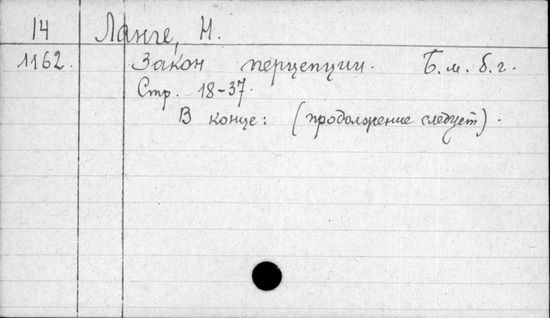 14 Ланге, Н.
1162. Закон перцепции. Б.м. б.г.
Стр. 18-37.
В конце: (продолжение следует).